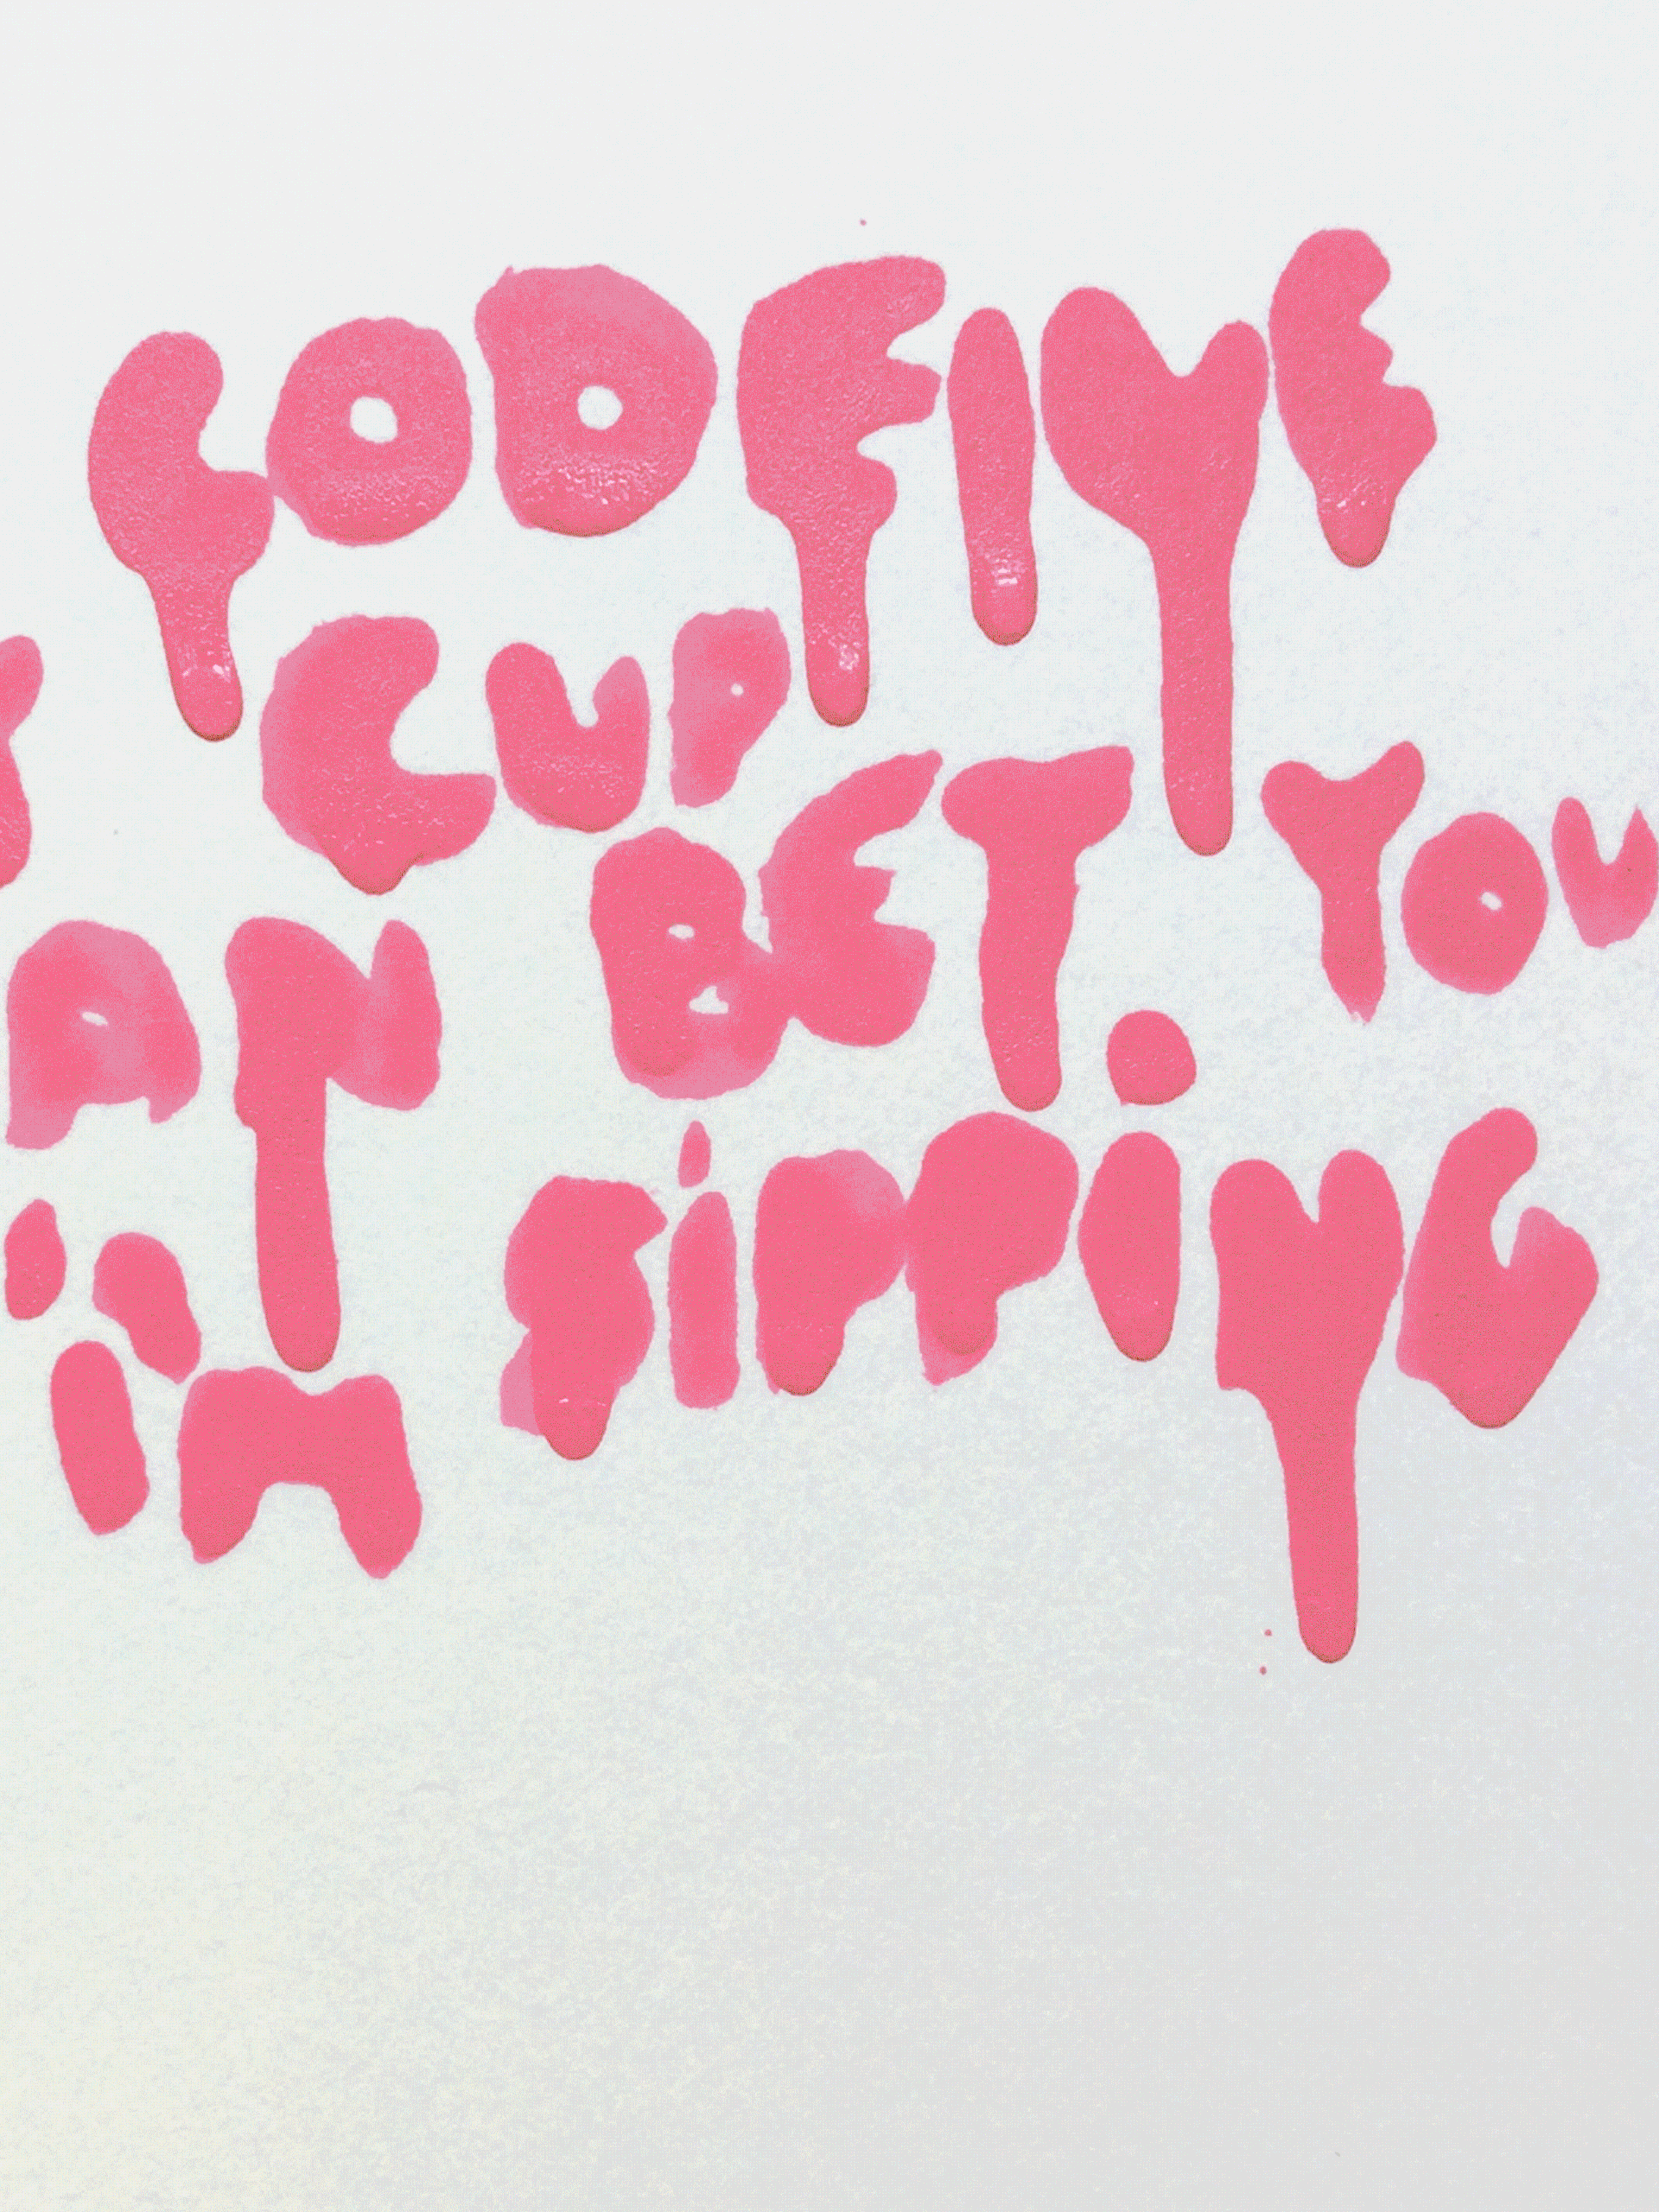 CODEINE
CUP
AN BET YOU
i'm SiPPiNG